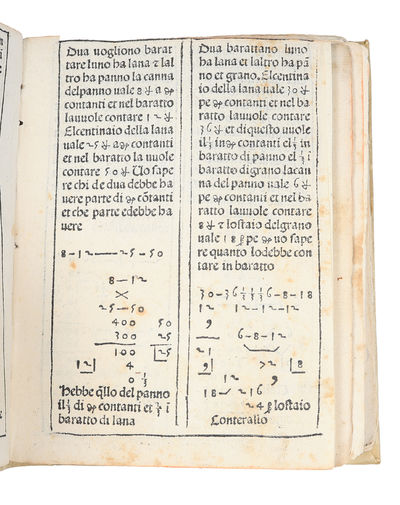 Dua uogliono barat
tare luno ha lana ⁊ lal
tro ha panno la canna
del panno uale 8 a contanti
contanti et nel baratto
la uuole contare 12
El centinaio della lana
uale 25 a contanti
et nel baratto la uuole
contare 50 Uo sape
re chi de dua debbe ha
uere parte di cõtanti
et che parte edebbe ha
uere
8-12—25-50
8-12
25-50
400 50
300 25
100 25
12 4
0 ½
Hebbe q̃llo del panno
il ½ di contanti et ½ i
baratto di lana
Dua barattano luno
ha lana et laltro ha pã
no et grano. El centina
io della lana uale 30
pe contanti et nel ba
ratto la uuole contare
36 et di questo uuole
il ⅓ in contanti el ⅓ in
baratto di panno el ⅓ i
baratto di grano la can
na del panno uale 6
pe contanti et nel ba
ratto la uuole contare
8 ⁊ lo staio del grano
uale 18 pe uo sape
re quanto lo debbe con
tare in baratto
30-36 ⅓ ⅓ ⅓ 6-8-18
12 12-12-12
9 6-8-12
21
9 72 8
12 9
18 216
24 lo staio
Conterallo